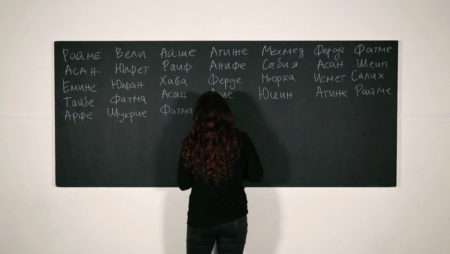 Райме Вели Айше Атиже Мехмед Ферде Фатме
Асан Юлфет Раиф Анифе Сабия Асан Шеип
Емине Юлфан Хава Ферде Нюрка Исмет Салих
Таибе Фатма Асан Юсеин Атиже Райме
Арфе Шукрие Фатма